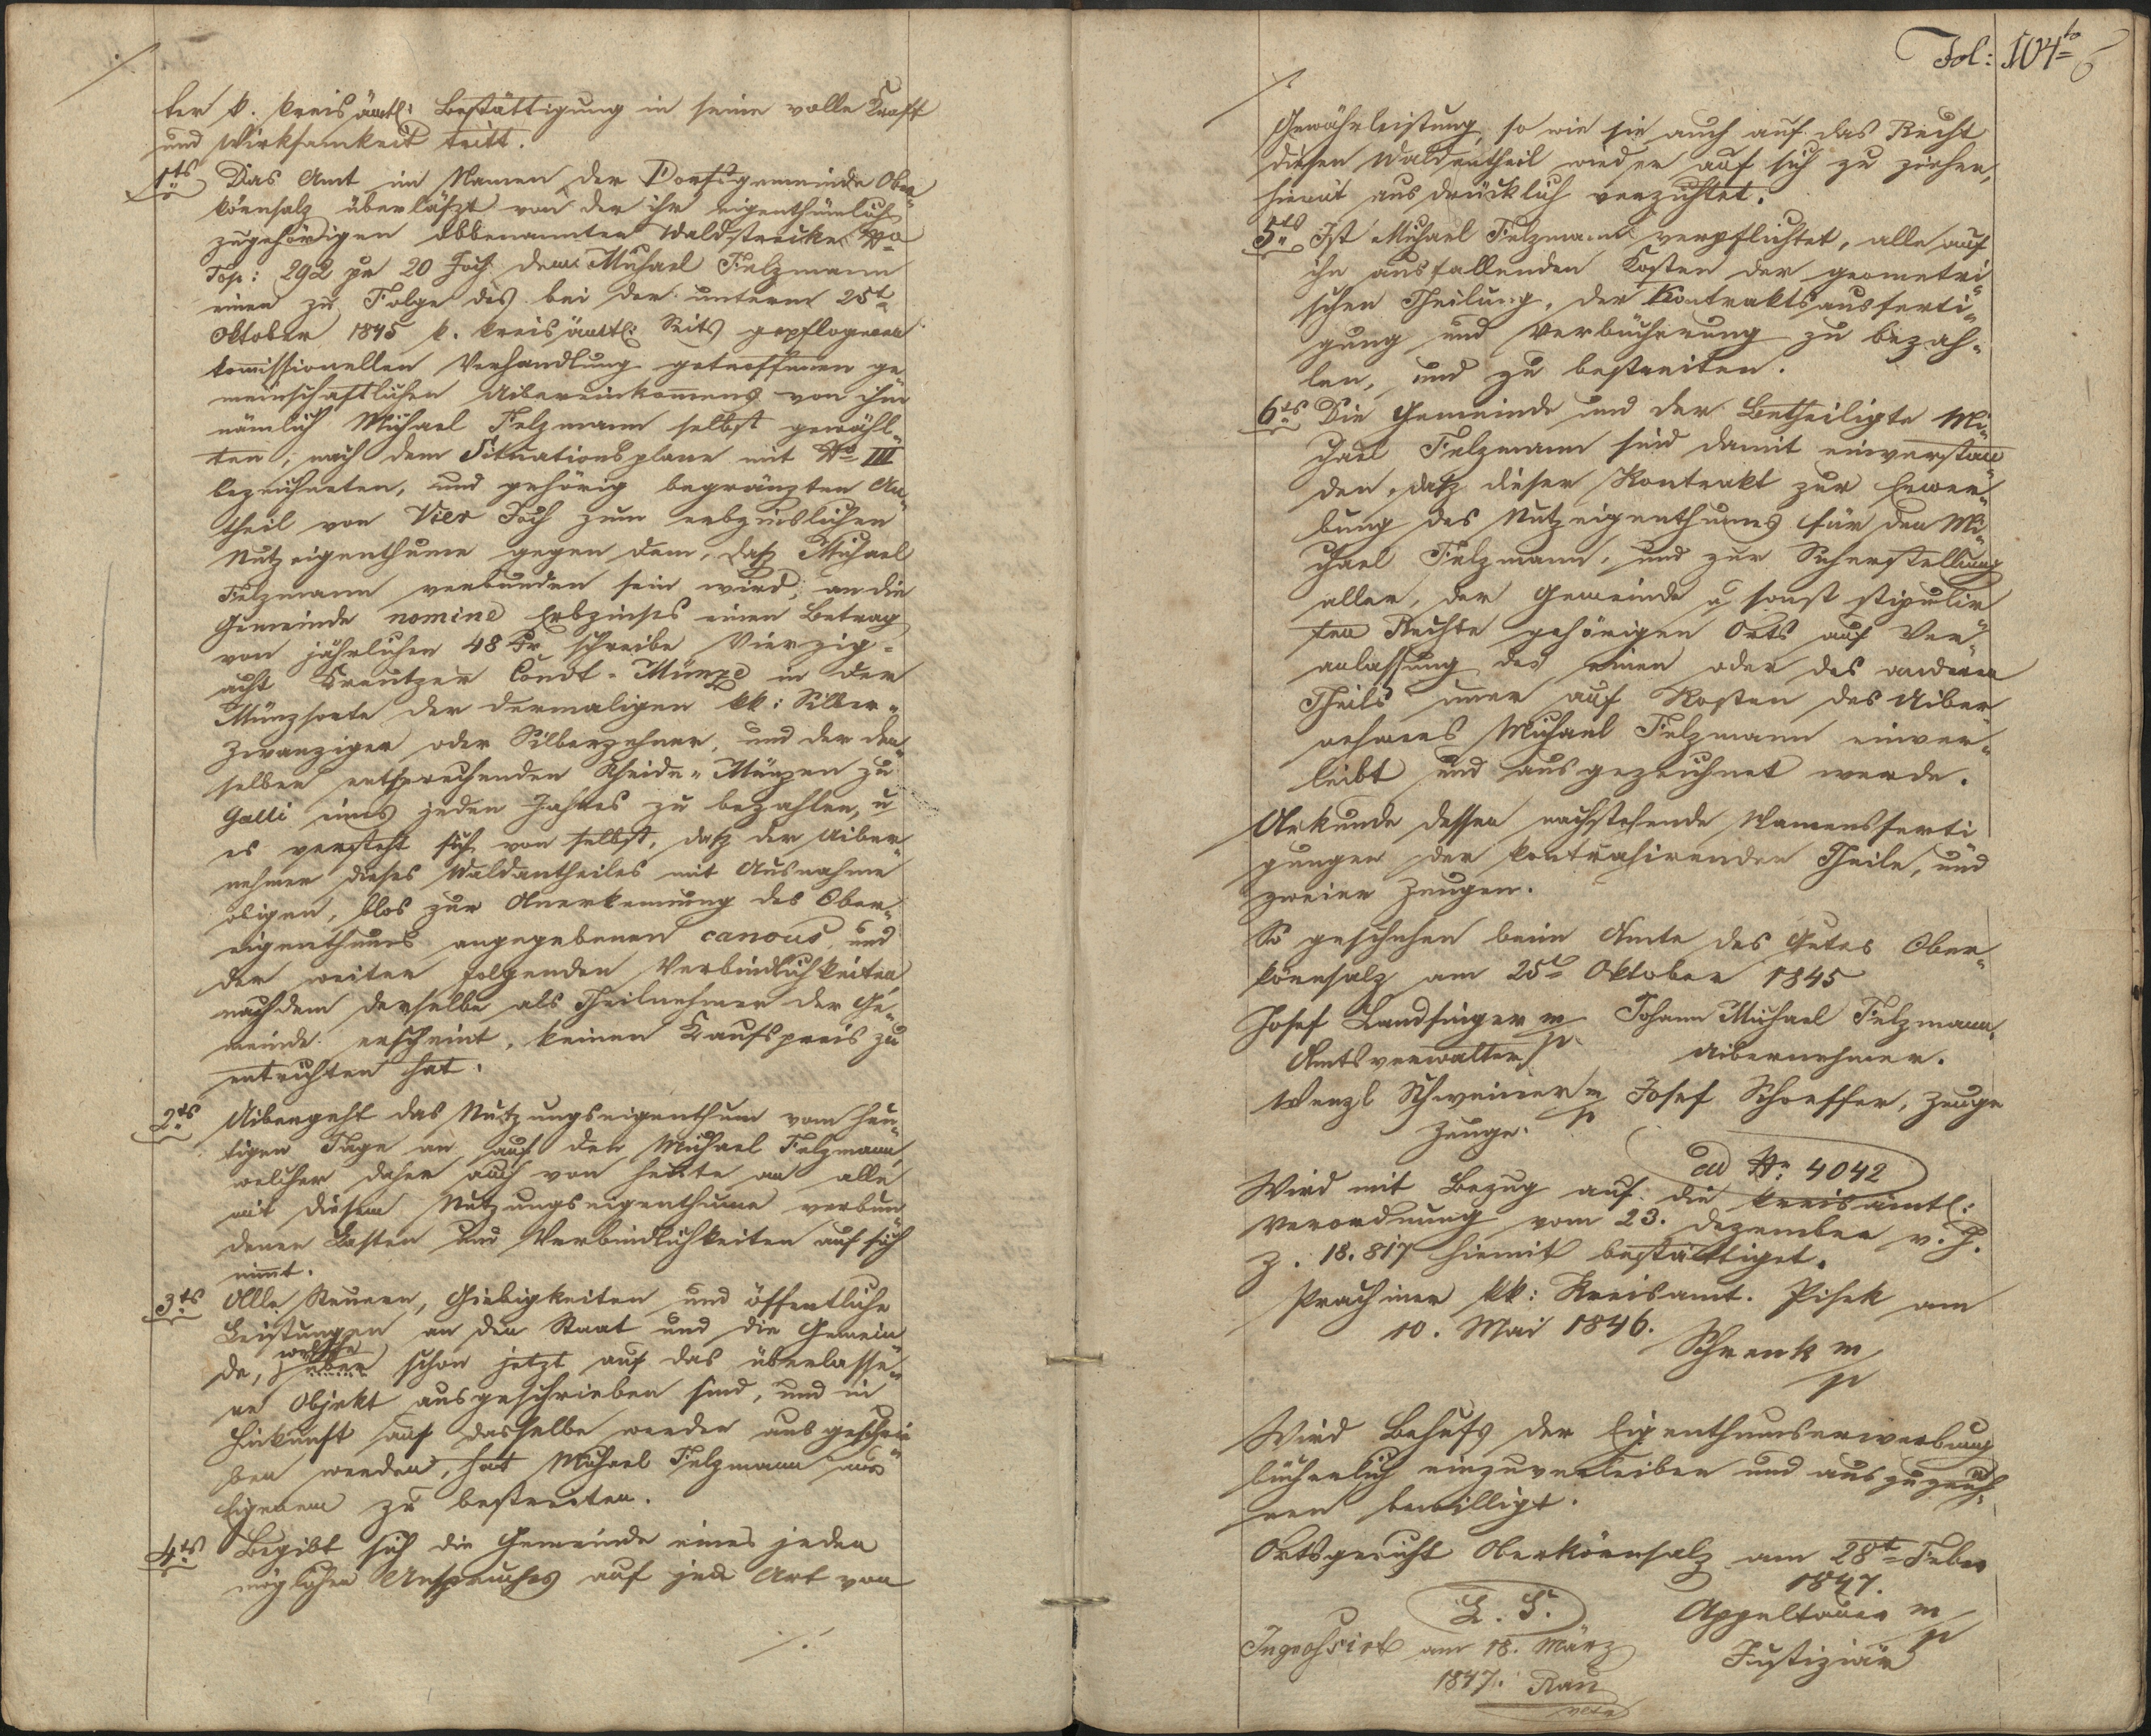 ./.
ter k. kreisämtl: Bestättigung in seine volle Kraft
und Wirksamkeit tritt.
1tens Das Amt im Namen der Dorfsgemeinde Ober-
körnsalz überläßt von der ihr eigenthümlich
zugehörigen obbenannten Waldstrecke No
Top: 292 pr 20 Joch dem Michael Felzmann
einen zu Folge des bei der unterm 25t
Oktober 1845 k. kreisämtl: Seits gepflogenen
kommissionellen Verhandlung getroffenen ge
meinschaftlichen Uibereinkommens von ihm
nämlich Michael Felzmann selbst gewähl-
ten, nach dem Situationsplane mit No III
bezeichneten, und gehörig begränzten An-
theil von Vier Joch zum erbzinslichen
Nutzeigenthume gegen dem, daß Michael
Felzmann verbunden sein wird, an die
Gemeinde nomine Erbzinses einen Betrag
von jährlichen 48 Kr schreibe Vierzig-
acht Kreutzer Convt. Münze in der
Münzsorte der dermaligen kk: Silber-
zwanziger oder Silberzehner, und der den-
selben entsprechenden Scheide-Münzen zu
Galli eines jeden Jahres zu bezahlen, u
es versteht sich von selbst, daß der Uiber
nehmer dieses Waldantheiles mit Ausnahme
obigen, blos zur Anerkennung des Ober-
eigenthums angegebenen canons, und
der weiter folgenden Verbindlichkeiten,
nachdem derselbe als Theilnehmer der Ge-
meinde erscheint, keinen Kaufspreis zu
entrichten hat.
2tens Uibergeht das Nutzungseigenthum vom heu-
tigen Tage an auf den Michael Felzmann,
welcher daher auch von heute an alle
mit diesem Nutzungseigenthume verbun
denen Lasten und Verbindlichkeiten auf sich
nimmt.
3tens Alle Steuern, Giebigkeiten und öffentliche
Leistungen an den Staat und die Gemein
welche
de, über schon jetzt auf das überlasse-
ne Objekt ausgeschrieben sind, und in
Hinkunft auf dasselbe werden ausgeschrie
ben werden, hat Michael Felzmann aus
Eigenem zu bestreiten.
4tens Begibt sich die Gemeinde eines jeden
möglichen Anspruches auf jede Art von
./.
Fol: 104to
./.
Gewährleistung, so wie sie auch auf das Recht
diesen Waldantheil wieder auf sich zu ziehen,
hiemit ausdrücklich verzichtet.
5tens Ist Michael Felzmann verpflichtet, alle auf
ihn ausfallenden Kosten der geometri-
schen Theilung, der Kontraktsausferti-
gung und Verbücherung zu bezah-
len, und zu bestreiten.
6tens Die Gemeinde und der Betheiligte Mi-
chael Felzmann sind damit einverstan
den, daß dieser Kontrakt zur Erwer-
bung des Nutzeigenthumes für den Mi-
chael Felzmann, und zur Sicherstellung
aller, der Gemeinde u sonst stipulir
ten Rechte gehörigen Orts auf Ver-
anlassung des einen oder des andern
Theils immer auf Kosten des Uiber
nehmers Michael Felzmann einver-
leibt und ausgezeichnet werde.
Urkunde dessen nachstehende Namensferti
gungen der kontrahirenden Theile, und
zweier Zeugen.
So geschehen beim Amte des Gutes Ober-
körnsalz am 25t Oktober 1845
Josef Landsinger mp Johann Michael Felzmann,
Amtsverwalter Uibernehmer.
Wenzl Schweiner mp Josef Schoeffer, Zeuge
Zeuge.
ad No: 4042
Wird mit Bezug auf die kreisämtl:
Verordnung vom 23. Dezember v. J.
Z. 18.817 hiemit bestättiget.
Prachiner kk: Kreisamt. Pisek am
10. Mai 1846.
Schrenk mp
Wird Behufs der Eigenthumserwerbung
bücherlich einzuverleiben und auszuzeich-
nen bewilligt.
Ortsgericht Oberkörnsalz am 28t Feber
1847.
L. S. Appeltauer mp
Justiziär
Ingrossirt am 18. März
1847. Rau